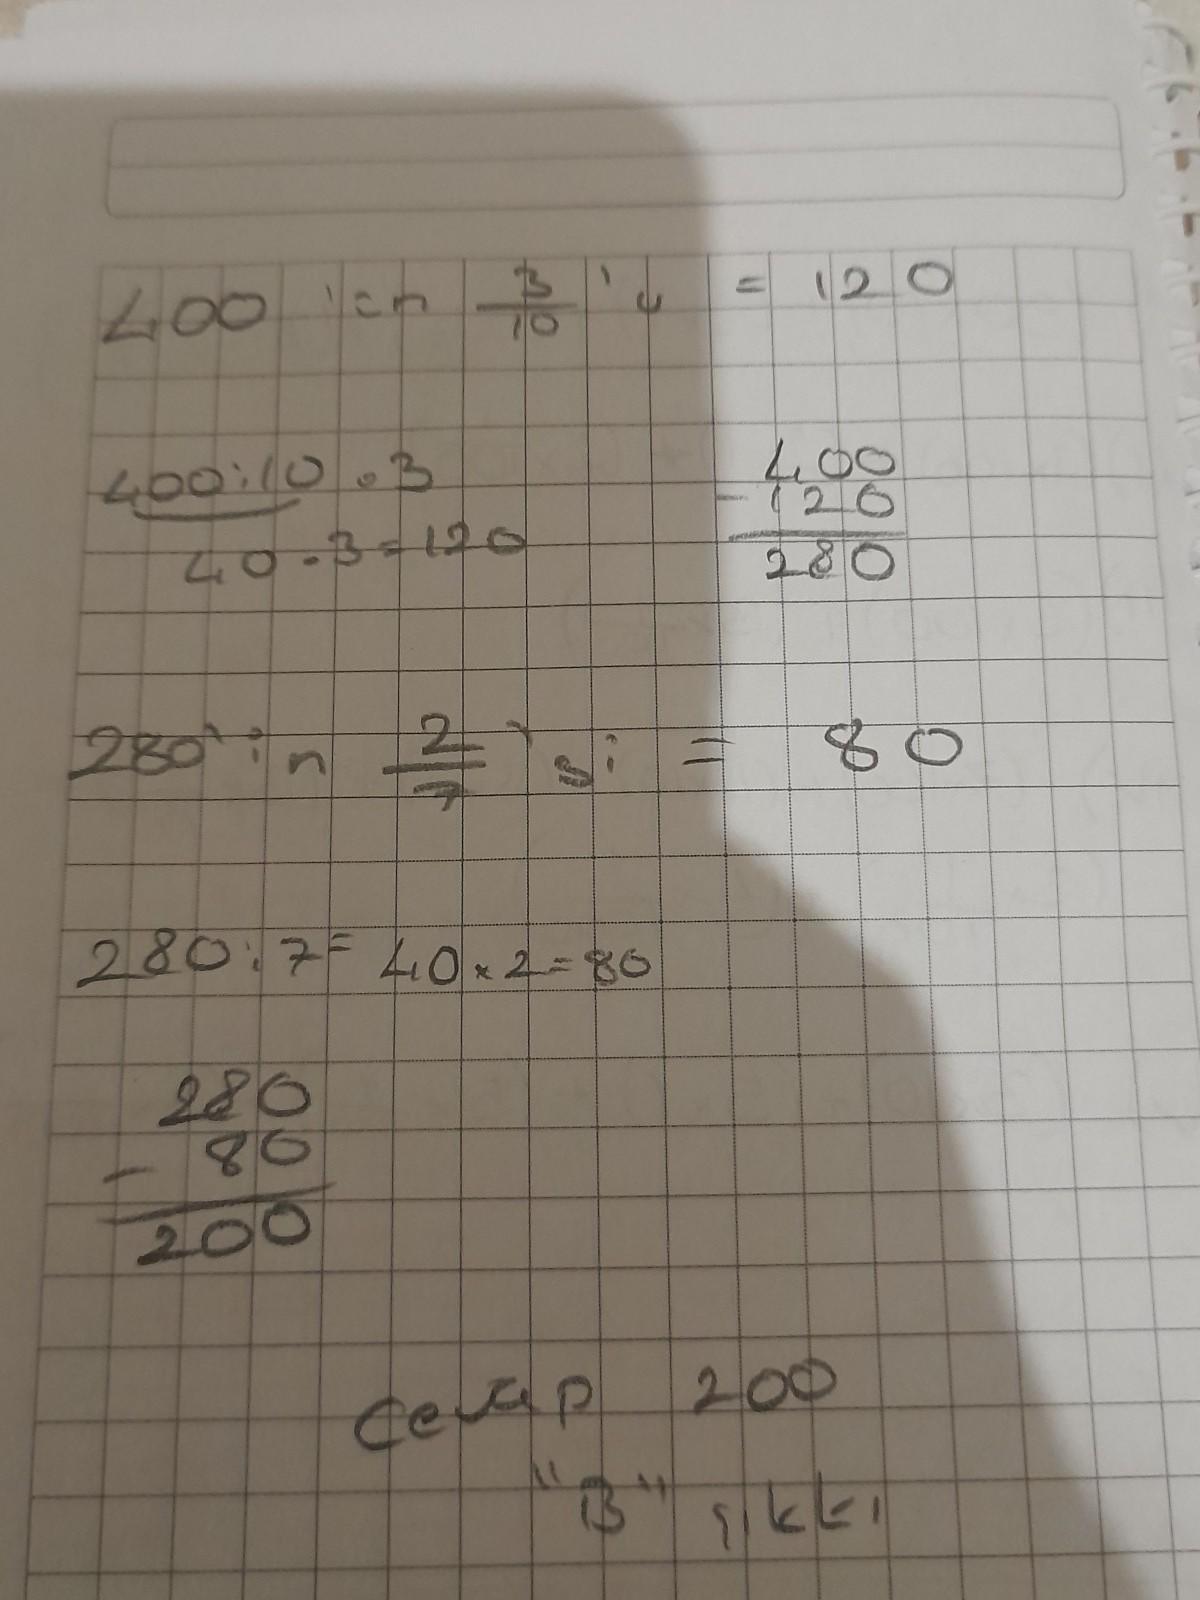 400 'ün 3/10 'u = 120
400:10 . 3
40 . 3 = 120
400
- 120
280
280'in 2/7 'si = 80
280:7= 40 × 2 = 80
280
- 80
200
Cevap 200
"B" şıkkı